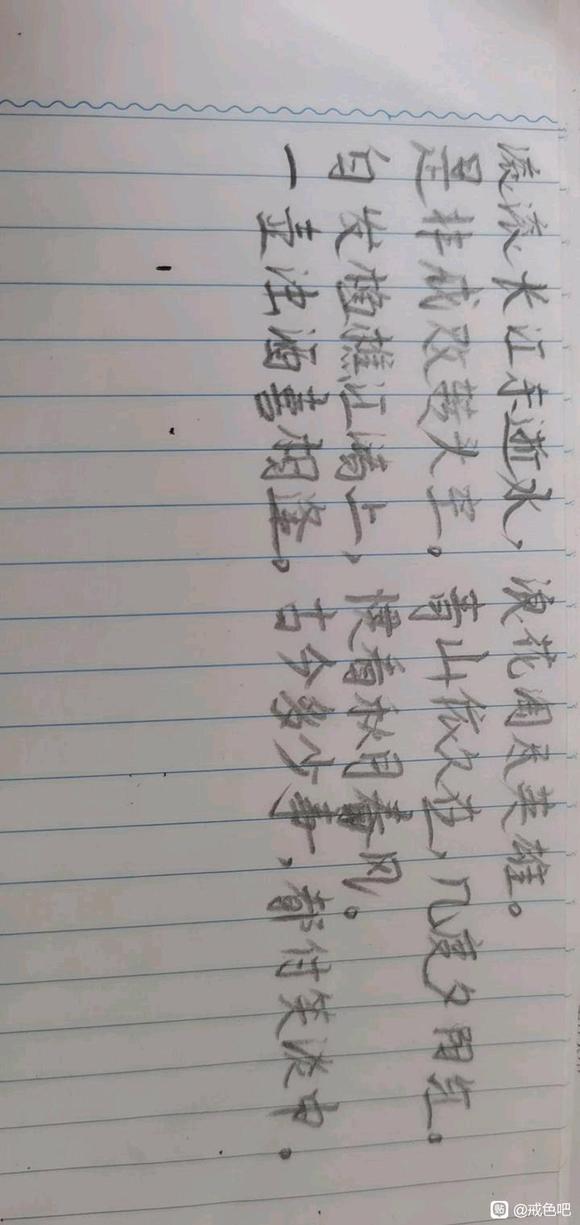 流流长江东逝水，浪花淘尽英雄。
是非成败转头空。青山依久在，几度夕阳红。
白发渔樵江渚上，惯看秋月春风。
一壶浊酒喜相逢。古今多少事，都付笑谈中.
贴 @戒色吧